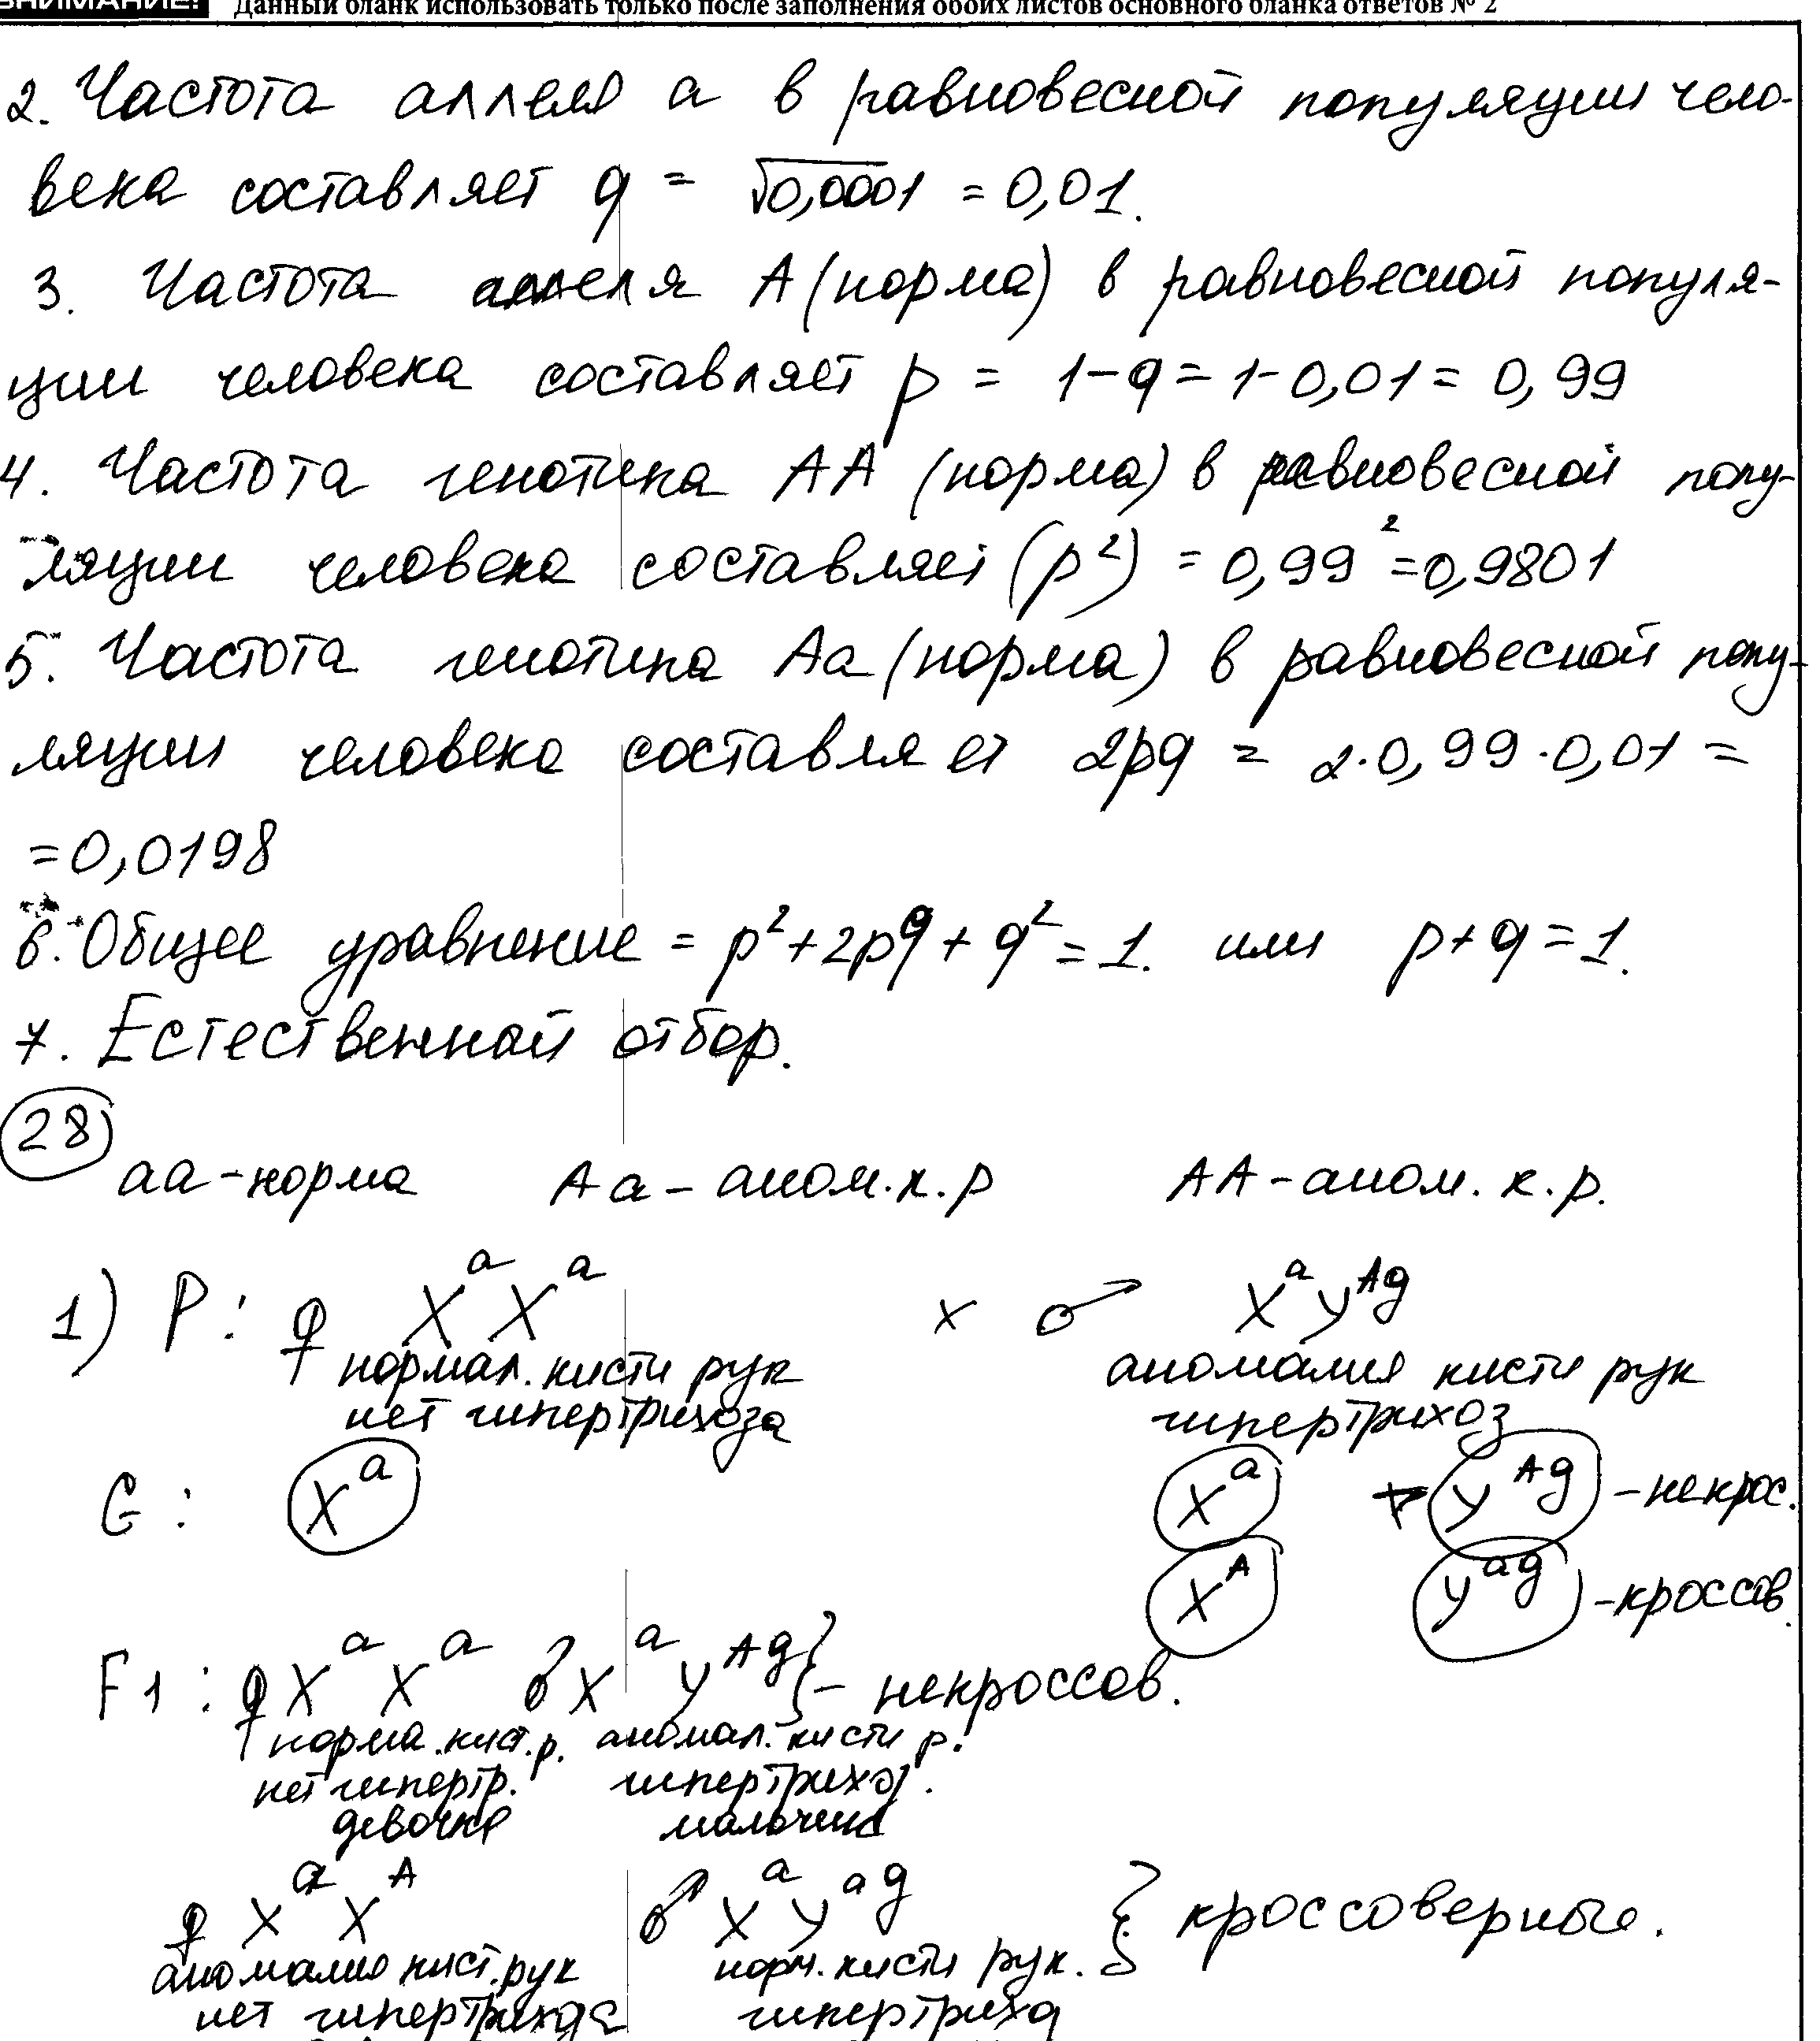 ВНИМАНИЕ! Данный бланк использовать только после заполнения обоих листов основного бланка ответов № 2
2. Частота аллеля а в равновесной популяции чело-
века составляет q = √0,0001 = 0,01.
3. Частота аллеля А (норма) в равновесной популя-
ции человека составляет p = 1-q = 1-0,01 = 0,99
4. Частота генотипа АА (норма) в равновесной попу-
ляции человека составляет (p²) = 0,99² = 0,9801
5. Частота генотипа Аа (норма) в равновесной попу-
ляции человека составляет 2pq = 2·0,99·0,01 =
= 0,0198
6. Общее уравнение = p² + 2pq + q² = 1. или p+q=1.
7. Естественной отбор.
28
аа - норма Аа - аном. к. р АА - аном. к. р.
1) P: ♀ XᵃXᵃ x ♂ XᵃYᴬᵍ
нормал. кисти рук аномалия кисти рук
нет гипертрихоза гипертрихоз
G: Xᵃ Xᵃ Yᴬᵍ - некрос.
Xᴬ Yᵃᵍ - кроссов.
F1: ♀ XᵃXᵃ ♂ XᵃYᴬᵍ } - некроссов.
норма. кист. р. аномал. кисти р.
нет гипертр. гипертрихоз.
девочка мальчик
♀ XᵃXᴬ ♂ XᵃYᵃᵍ } кроссоверные.
аномалия кист. рук норм. кисти рук.
нет гипертриха гипертрихо